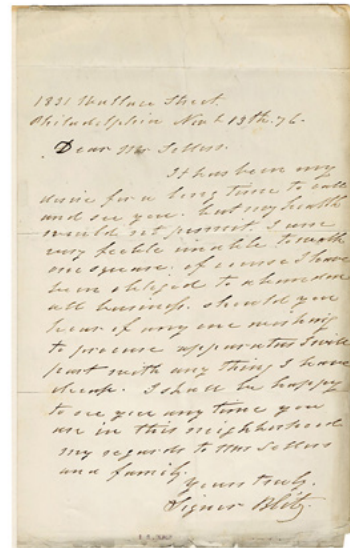 1831 Wallace Street.
Philadelphia Nov 13th. 76.
Dear Mr Sellers.
It has been my
desire for a long time to call
and see you. but my health
would not permit. I am
very feeble unable to walk
one square. of course I have
been obliged to abandon
all business. should you
hear of any one wishing
to procure apparatus I will
part with any thing I have
cheap. I shall be happy
to see you any time you
are in this neighborhood
my regards to Mrs Sellers
and family.
Yours truly.
Signor Blitz.